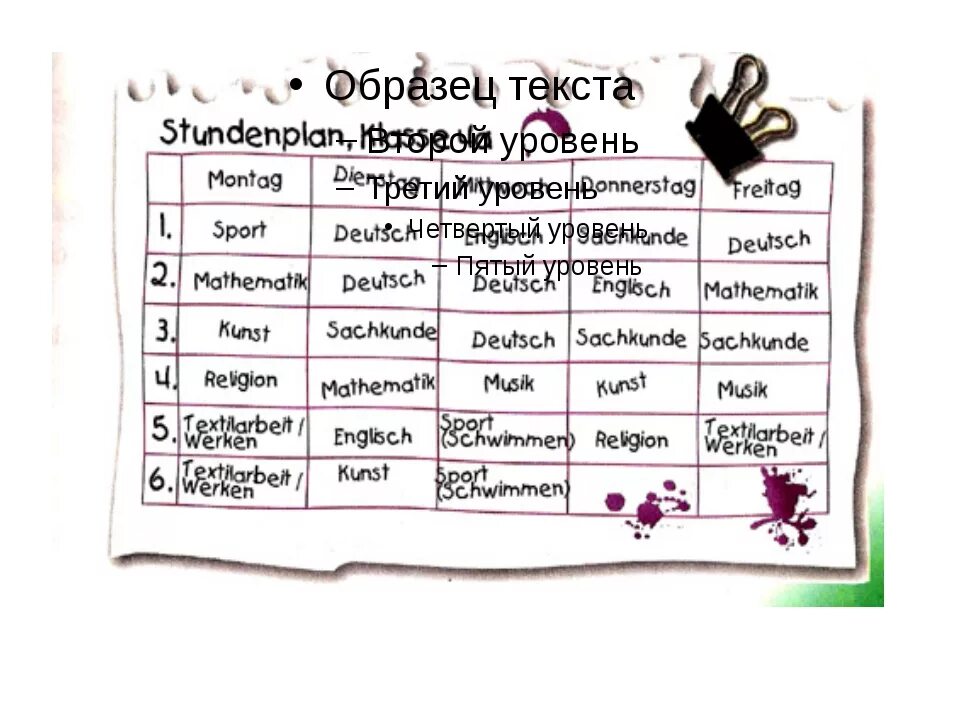 • Образец текста
Stundenplan, Klasse
– Второй уровень
Montag Dienstag Mittwoch Donnerstag Freitag
– Третий уровень
1. Sport Deutsch Englisch Sachkunde Deutsch
• Четвертый уровень
– Пятый уровень
2. Mathematik Deutsch Deutsch Englisch Mathematik
3. Kunst Sachkunde Deutsch Sachkunde Sachkunde
4. Religion Mathematik Musik Kunst Musik
5. Textilarbeit/ Werken Englisch Sport (Schwimmen) Religion Textilarbeit/ Werken
6. Textilarbeit/ Werken Kunst Sport (Schwimmen)